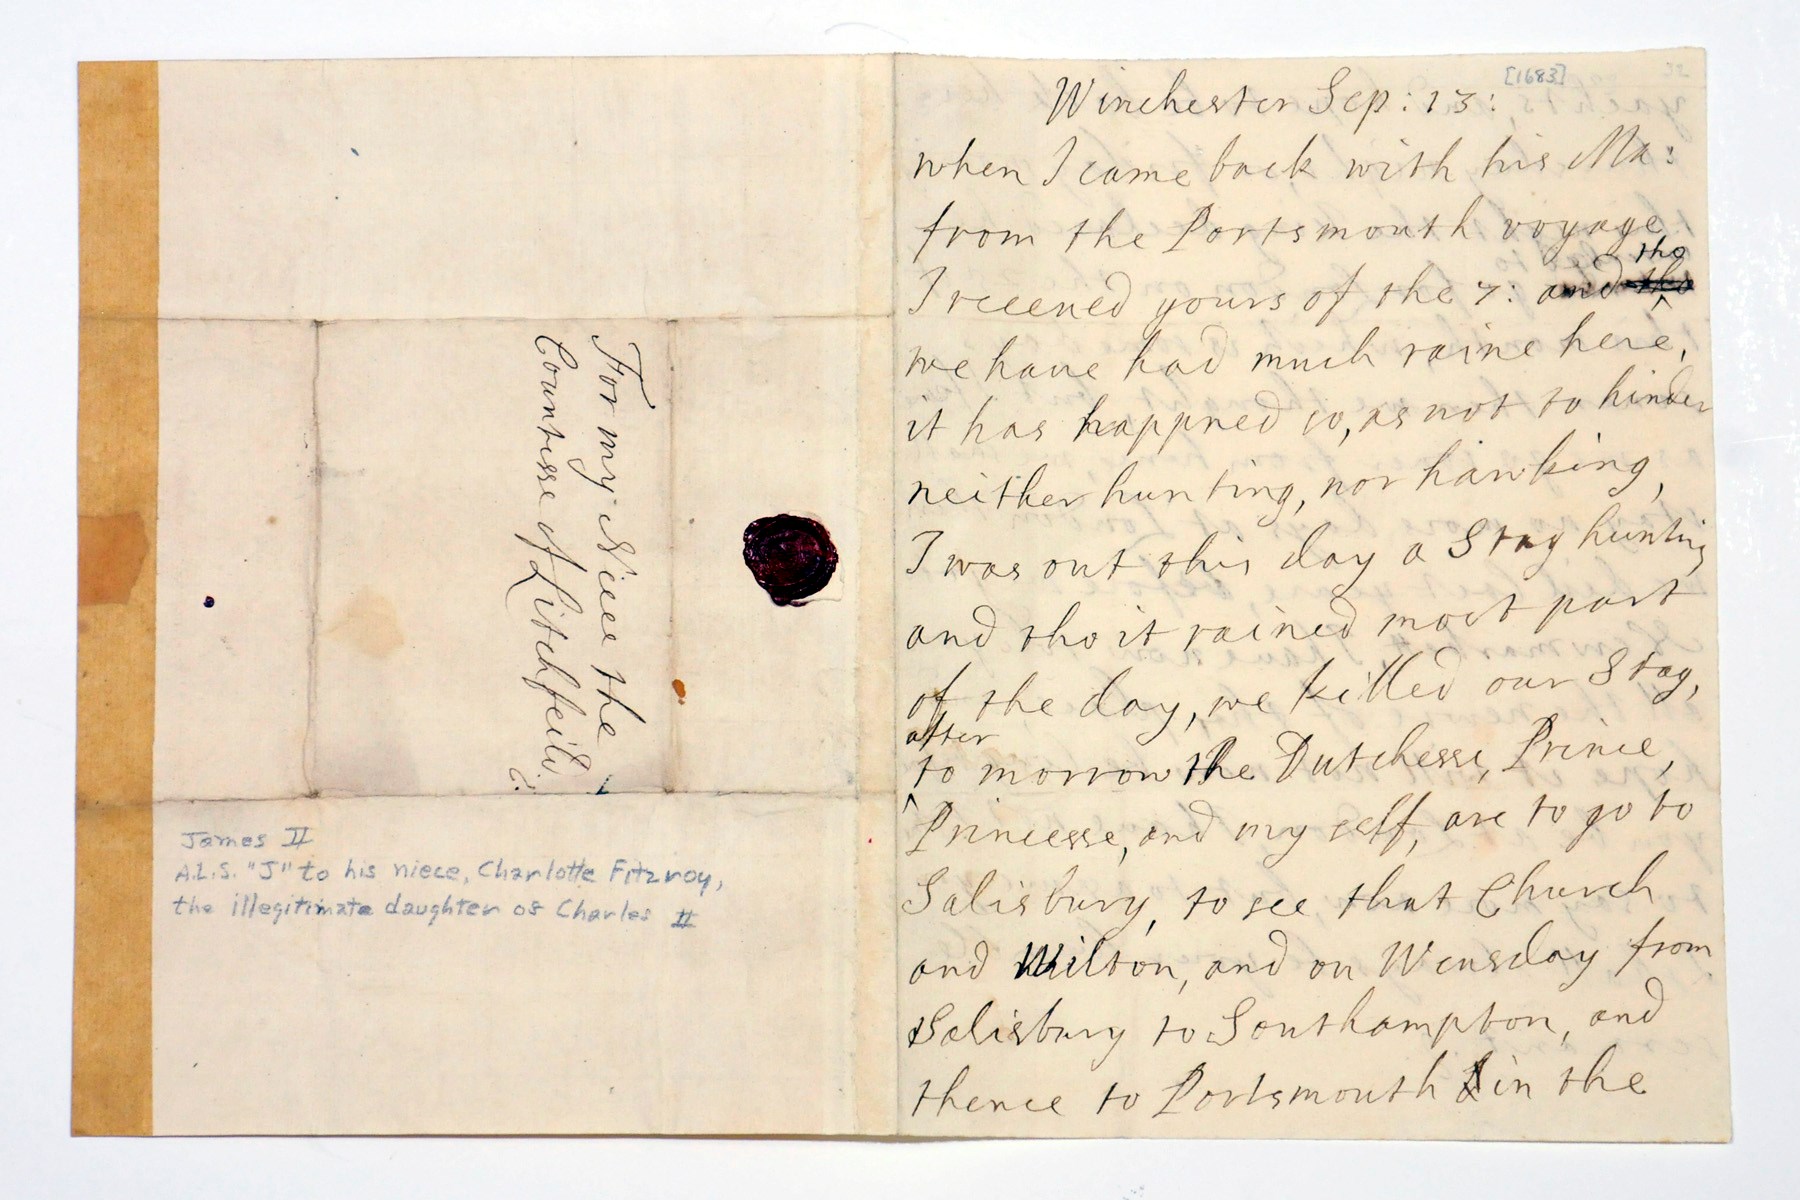 For my Niece the
Countesse of Litchfeild
James II
A.L.S. "J" to his niece, Charlotte Fitzroy,
the illegitimate daughter of Charles II
[1683]
Winchester Sep: 13:
when I came back with his Ma:
from the Portsmouth voyage
tho
I receued yours of the 7: and
we haue had much raine here,
it has happned so, as not to hinder
neither hunting, nor hawking,
I was out this day a Stag hunting
and tho it rained most part
of the day, we killed our Stag,
after
to morrow the Dutchesse, Prince,
Princesse, and my self, are to go to
Salisbury, to see that Church
and Wilton, and on Wensday from
Salisbury to Southampton, and
thence to Portsmouth in the